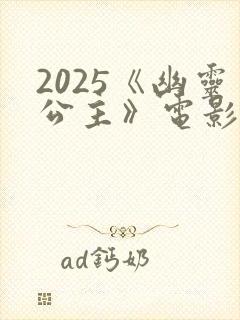 2025《幽靈
公主》電影
ad鈣奶